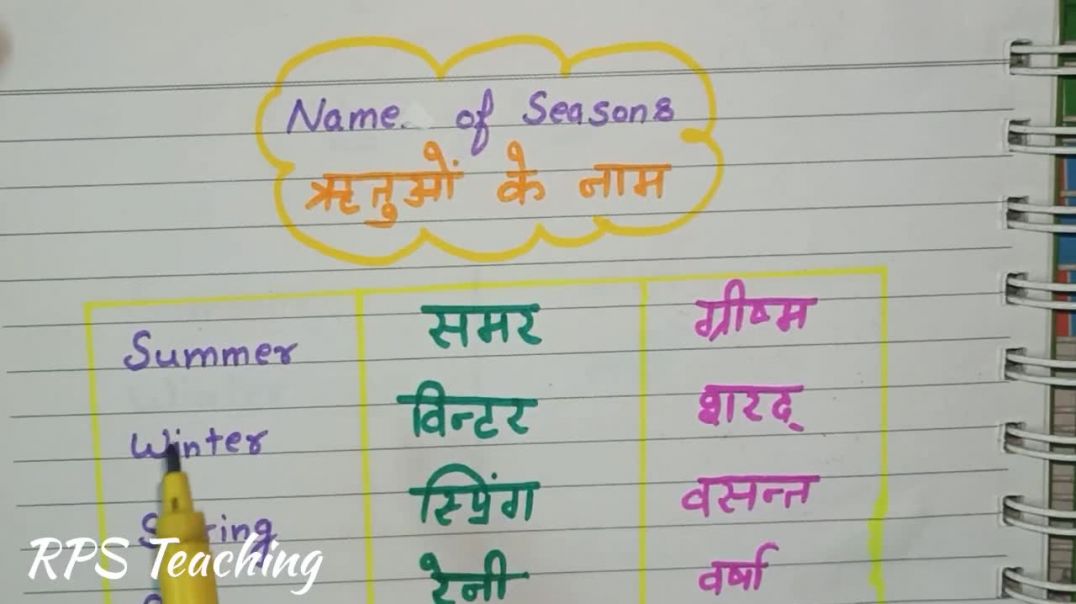 Name of Seasons
ऋतुओं के नाम
Summer समर ग्रीष्म
Winter विन्टर शरद्
Spring स्प्रिंग वसन्त
रेनी वर्षा
RPS Teaching